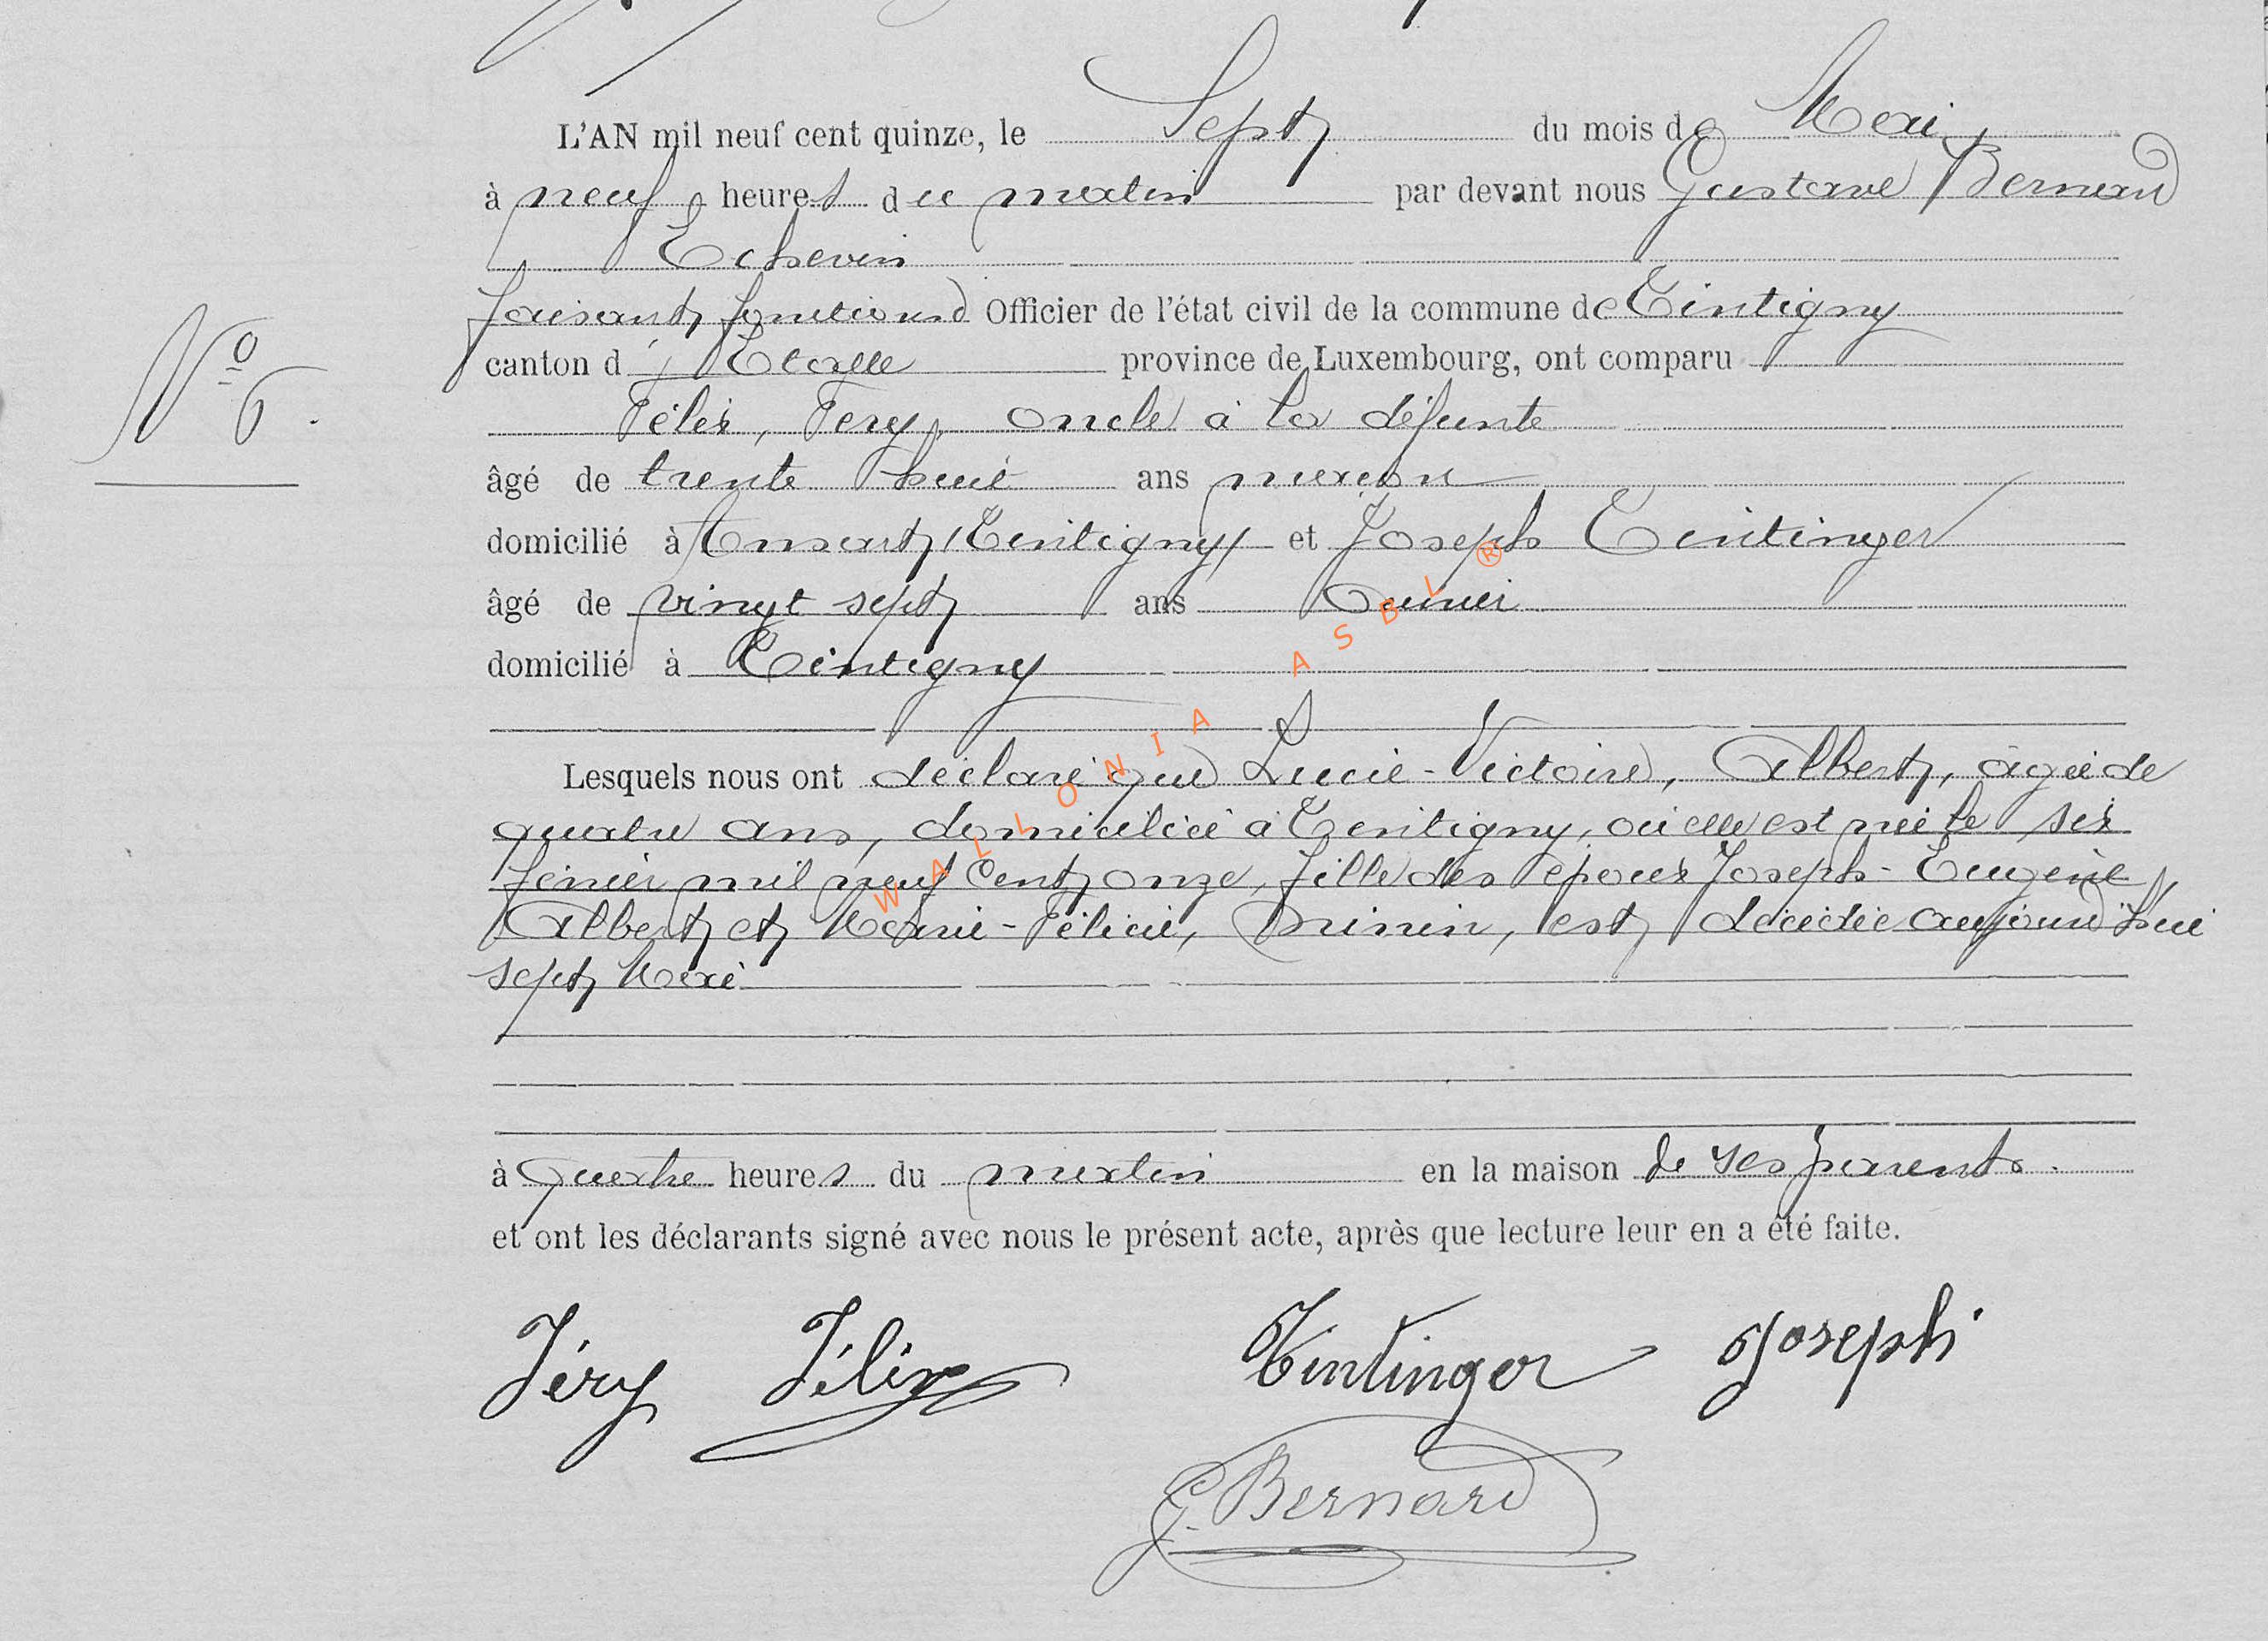 L'AN mil neuf cent quinze, le Sept du mois de Mai
à neuf heures du matin par devant nous Gustave Bernard
Echevin
faisant fonctions Officier de l'état civil de la commune de Tintigny
canton d'Etalle province de Luxembourg, ont comparu
Félix, Fery, oncle à la défunte
N° 6.
âgé de trente huit ans maçon
domicilié à Ansart (Tintigny) et Joseph Tintinger
âgé de vingt sept ans
domicilié à Tintigny
Lesquels nous ont déclaré que Lucie-Victoire, Albert, agée de
quatre ans, domiciliée à Tintigny, où elle est née le six
février mil neuf Cent onze, fille des époux Joseph-Eugène
Albert et Marie-Félicie, est décédée aujourd'hui
sept Mai
à quatre heures du matin en la maison de ses parents.
et ont les déclarants signé avec nous le présent acte, après que lecture leur en a été faite.
Féry Félix Tintinger Joseph
G. Bernard
WALLONIA ASBL ®